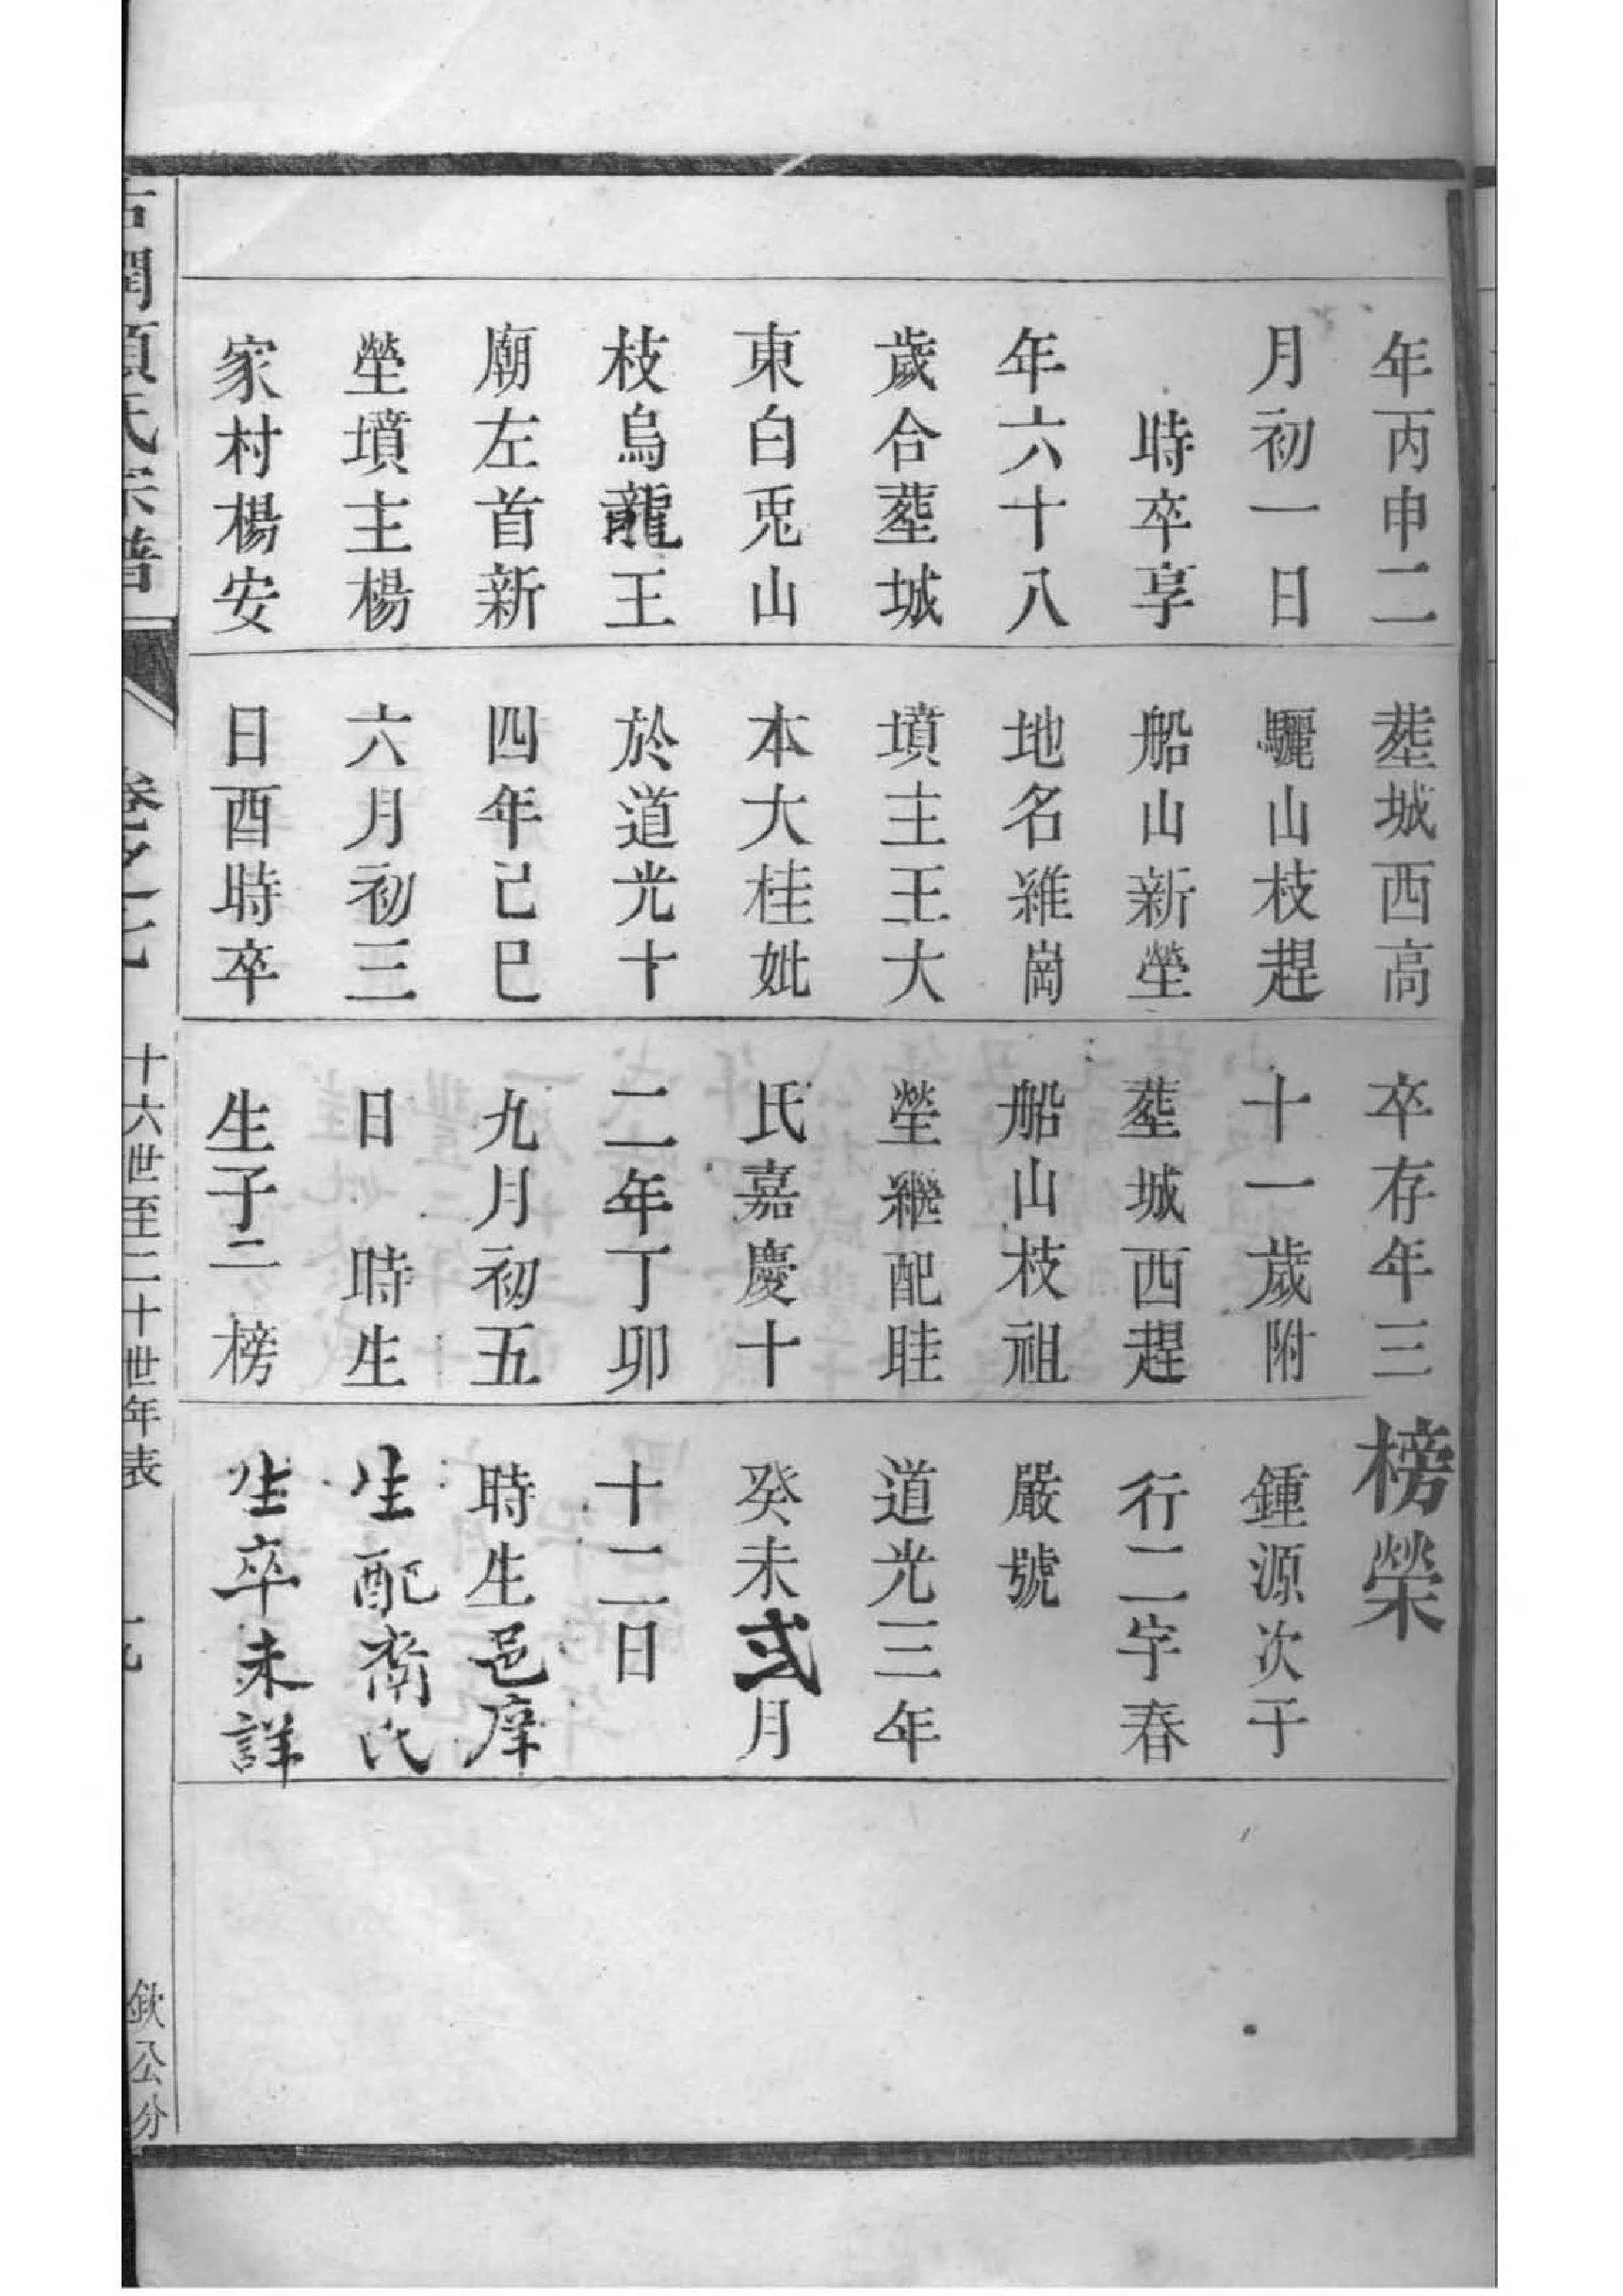 年丙申二
月初一日
時卒享
年六十八
歲合塟城
東白兎山
枝烏龍王
廟左首新
塋墳主楊
家村楊安
塟城西高
驪山枝趕
船山新塋
地名雞崗
墳主王大
本大桂妣
於道光十
四年己巳
六月初三
日酉時卒
卒存年三
十一歲附
塟城西趕
船山枝祖
塋繼配眭
氏嘉慶十
二年丁卯
九月初五
日 時生
生子二 榜
榜榮
鍾源次于
行二字春
嚴號
道光三年
癸未弍月
十二日
時生邑庠
生配 氏
生卒未詳
氏宗譜 卷之七 十六世至二十世年表 九 欽公分